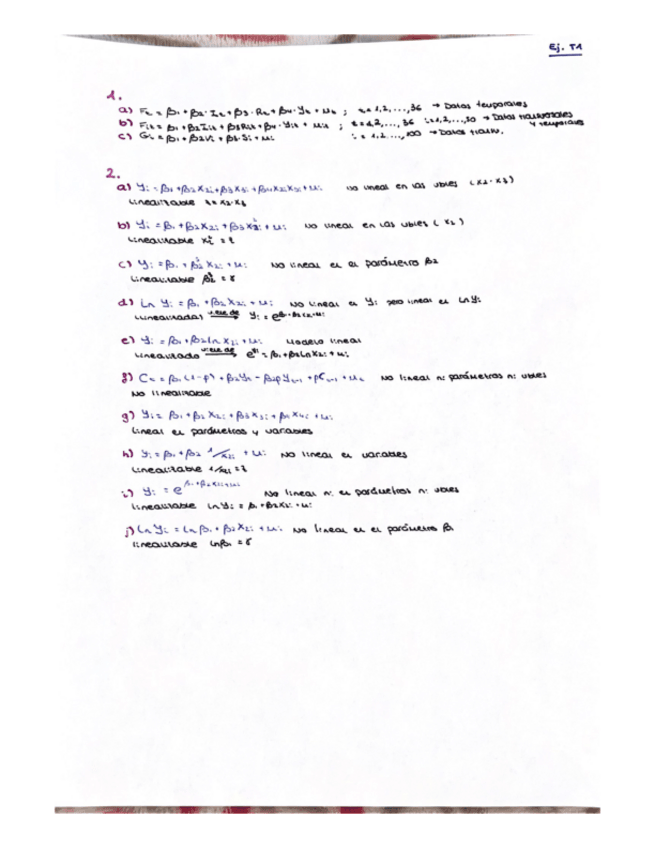 Ej. T1
1.
a) Ft = β1 + β2 · It + β3 · Rt + β4 · Yt + ut ; t = 1,2,...,36 → Datos temporales
b) Fit = β1 + β2Iit + β3Rit + β4 · Yit + uit ; t = 1,2,..., 36 i = 1,2,...,30 → Datos transversales y temporales
c) Gi = β1 + β2Vi + β3 · Si + ui i = 1,2,...,100 → Datos transv.
2.
a) Yi = β1 + β2X2i + β3X3i + β4X2iX3i + ui no lineal en las vbles (x2 · x3)
Linealizable z = x2 · x3
b) Yi = β1 + β2X2i + β3X2i² + ui No lineal en las vbles ( x2 )
Linealizable x2² = z
c) Yi = β1 + β2² X2i + ui No lineal en el parámetro β2
Linealizable β2² = γ
d) Ln Yi = β1 + β2X2i + ui No lineal en Yi pero lineal en LnYi
(Linealizada) viene de → Yi = e
e) Yi = β1 + β2Ln X2i + ui Modelo lineal
Linealizado viene de → = β1 + β2LnX2i + ui
f) Ct = β1(1-ρ) + β2Yt - β2ρYt-1 + ρCt-1 + ut No lineal ni parámetros ni vbles
No linealizable
g) Yi = β1 + β2X2i + β3X3i + β4X4i + ui
Lineal en parámetros y variables
h) Yi = β1 + β2 1/X2i + ui No lineal en variables
Linealizable 1/X2i = z
i) Yi = e^β1+β2X2i+ui No lineal ni en parámetros ni vbles
Linealizable LnYi = β1 + β2X2i + ui
j) Ln Yi = Ln β1 + β2X2i + ui No lineal en el parámetro β1
Linealizable Lnβ1 = γ